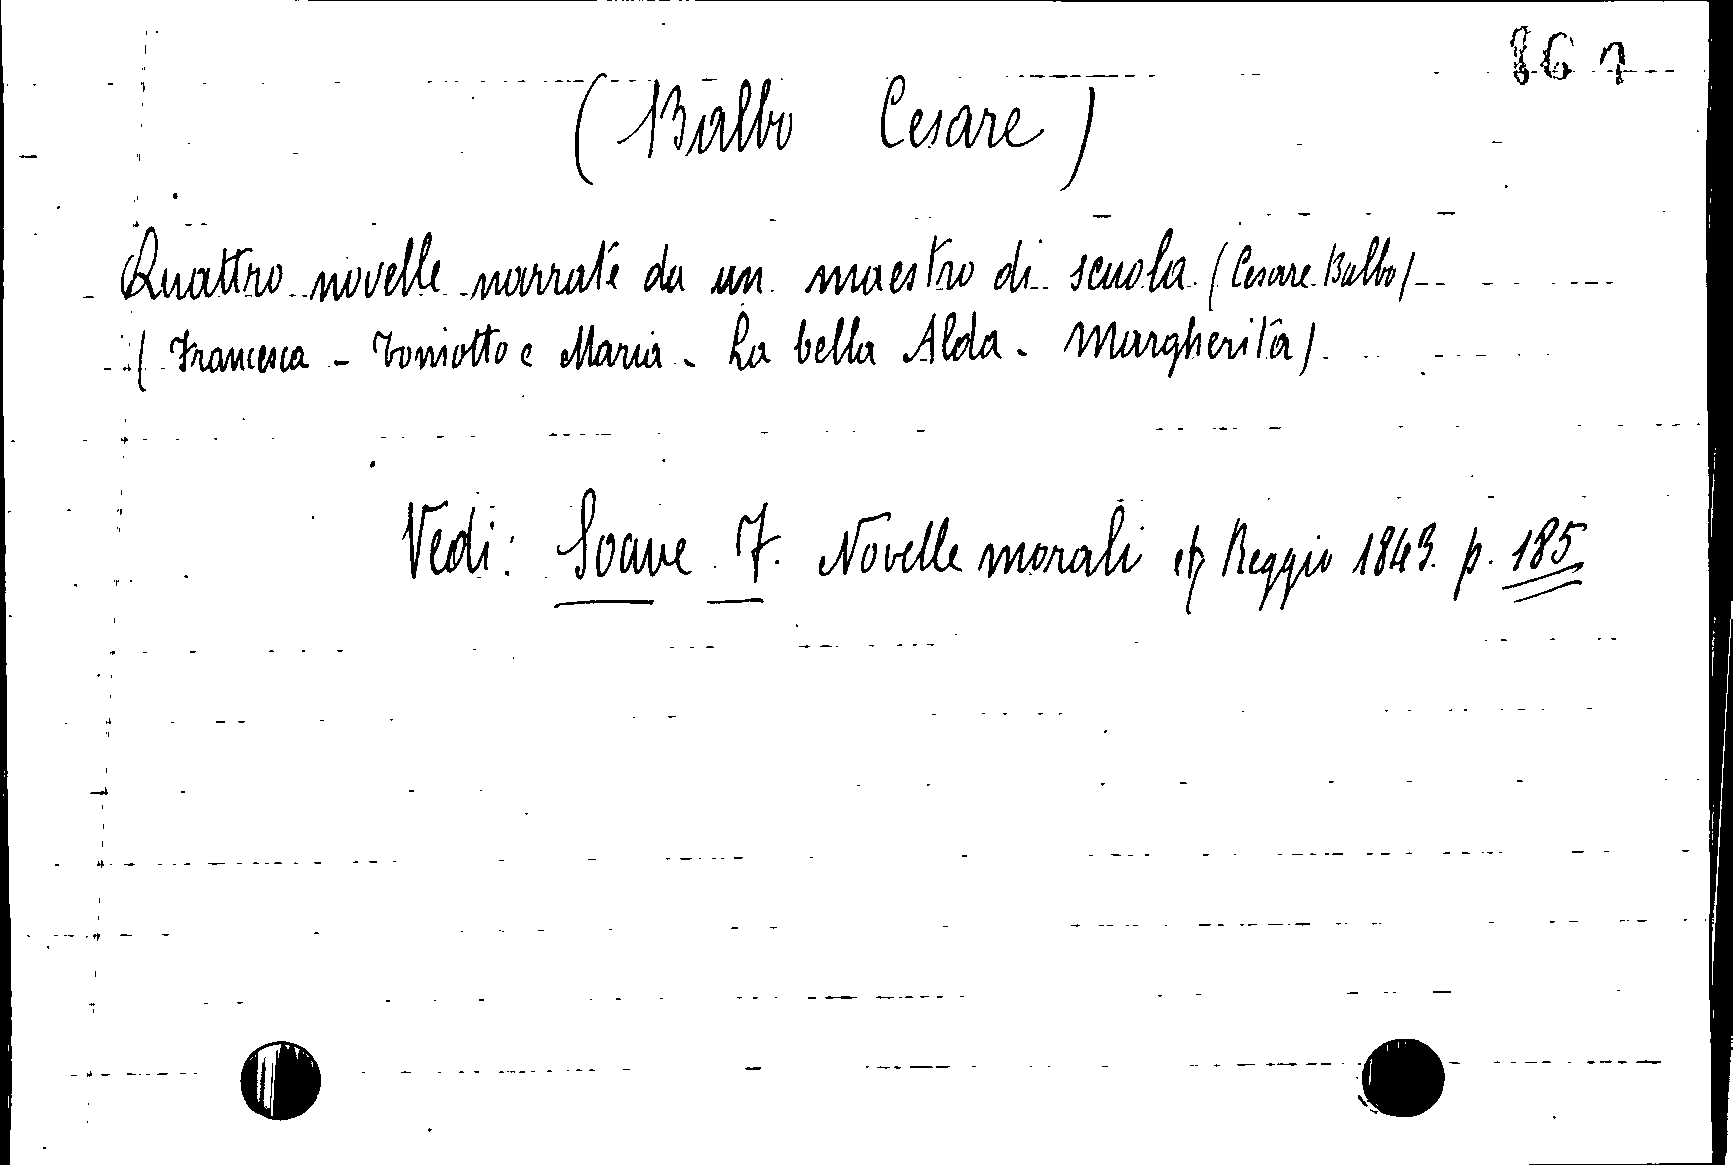 867
(Balbo Cesare)
Quattro novelle narrate da un maestro di scuola (Cesare Balbo)
(Francesca - Toniotto e Maria - La bella Alda - Margherita)
Vedi: Soave F. Novelle morali Reggio 1843. p. 185